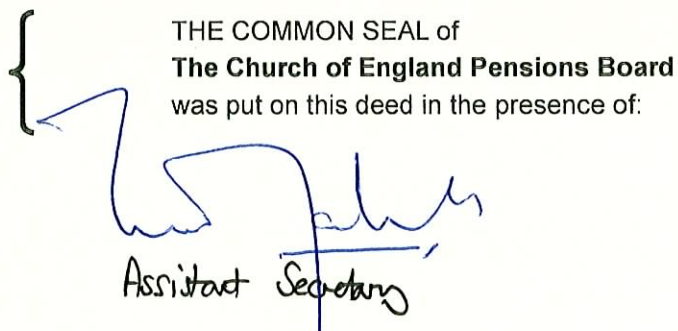 THE COMMON SEAL of
The Church of England Pensions Board
was put on this deed in the presence of:
Assistant Secretary